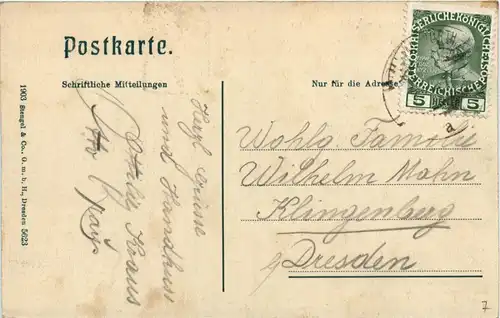 Postkarte.
Schriftliche Mitteilungen
Nur für die Adresse
KAISERLICHE KÖNIGLICHE
ÖSTERREICHISCHE POST
5 5
Herzl. Grüsse
und Handkuss
Kraus
Wohlg Familie
Wilhelm Mahn
Klingenberg
b/ Dresden
1903 Stengel & Co., G. m. b. H., Dresden 5623
a
7